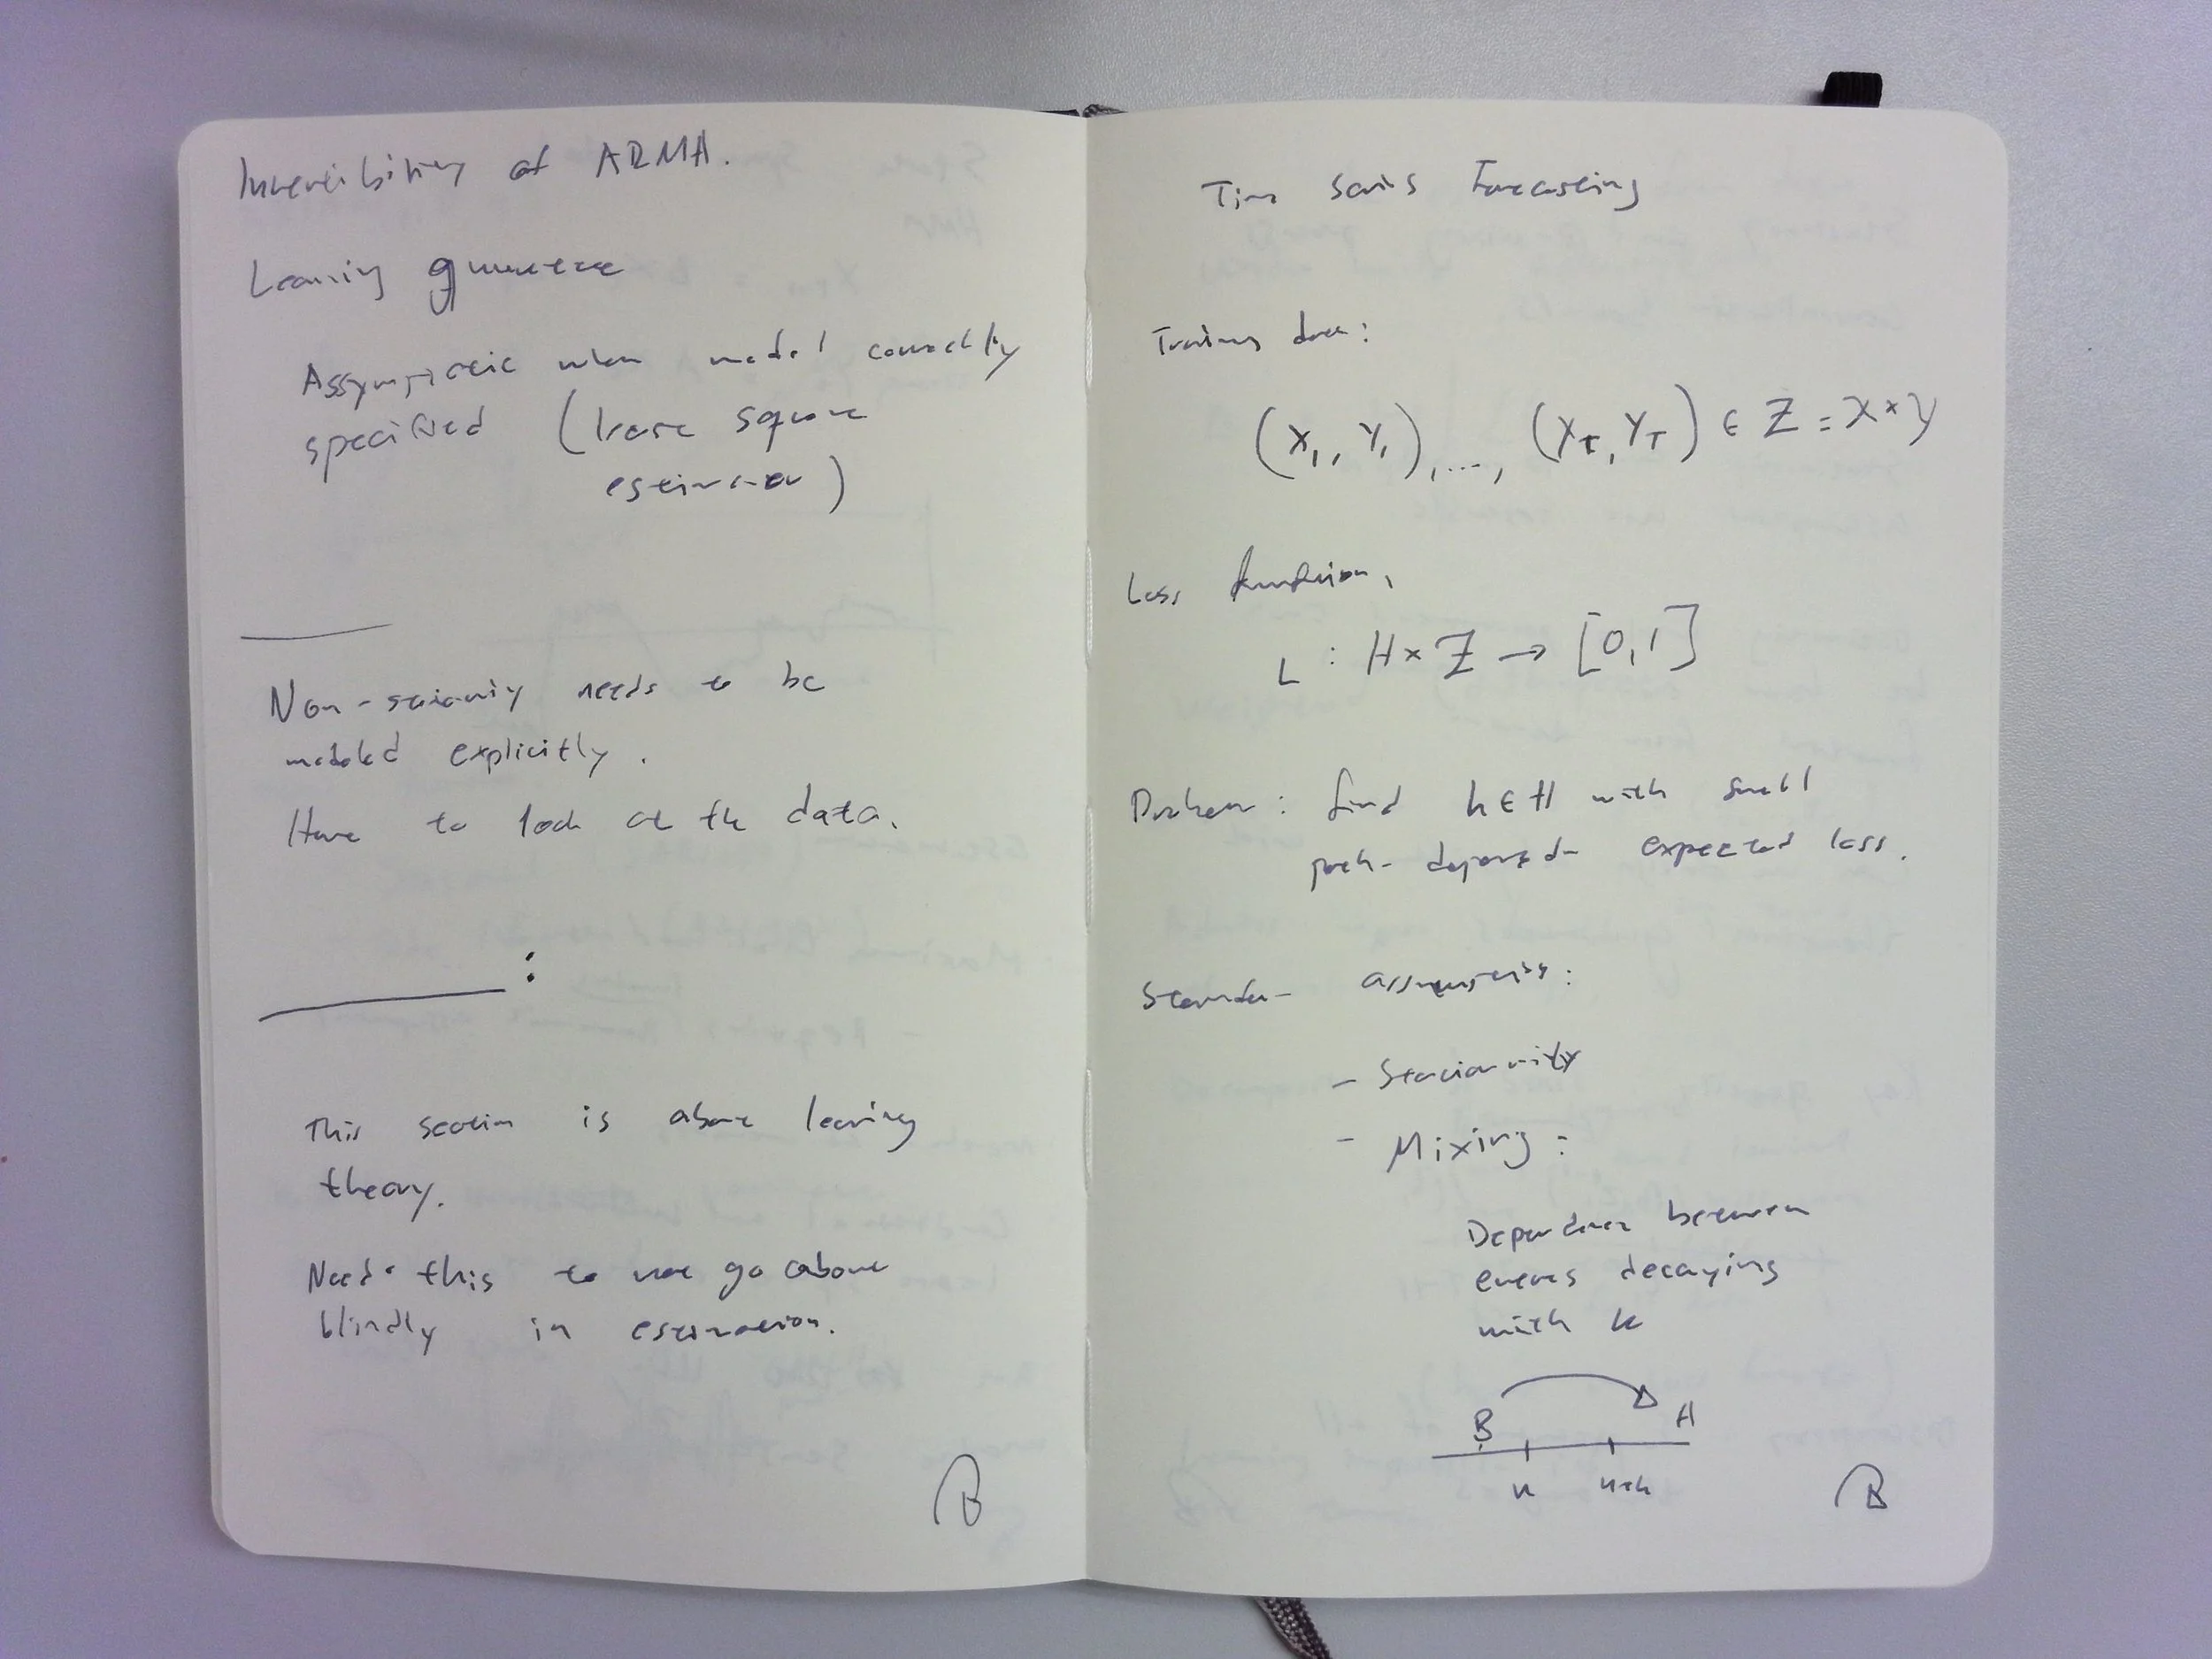 Invertibility of ARMA.
Learning guarantee
Assymptotic when model correctly
specified (least square
estimator)
Non-stationarity needs to be
modeled explicitly.
Have to look at the data.
:
This section is about learning
theory.
Need this to not go about
blindly in estimation.
B
Time Series Forecasting
Training data:
(X₁, Y₁), ..., (X_T, Y_T) ∈ Z = X × Y
Loss function,
L : H × Z → [0,1]
Problem: find h ∈ H with small
path-dependent expected loss.
Standard assumptions:
- Stationarity
- Mixing:
Dependence between
events decaying
with k
B A
n n+k
B